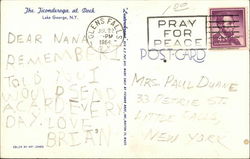 The Ticonderoga at Dock
Lake George, N.Y.
GLENS FALLS
N.Y.
PRAY
FOR
PEACE
POST CARD
DEAR NANA
REMEMBER I
TOLD YOU I
WOULD SEND
A CARD EVERY
DAY. LOVE
BRIAN
Mrs. Paul Duane
33 Petrie St.
Little Falls,
New York